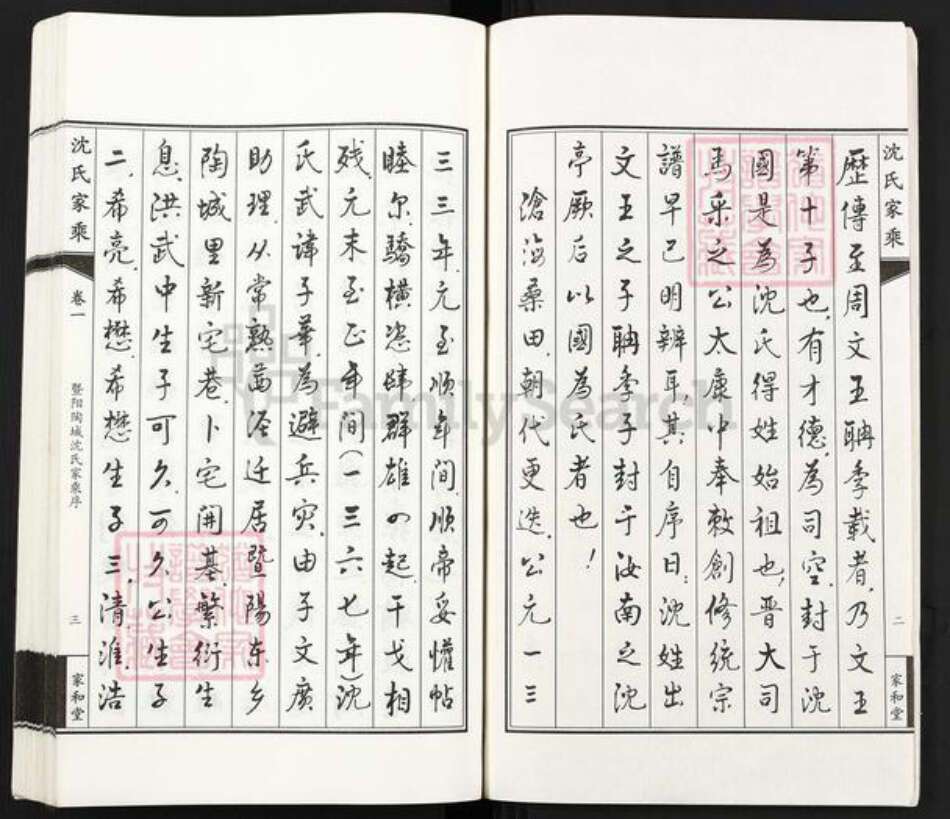 沈氏家乘
二
家和堂
歷傳至周文王聃季載者,乃文王
第十子也,有才德,為司空,封于沈
國是為沈氏得姓始祖也,晋大司
馬采之公太康中奉敕創修統宗
譜早已明辨耳,其自序曰:沈姓出
文王之子聃季子封于汝南之沈
亭厥后以國為氏者也!
滄海桑田,朝代更迭,公元一三
三三年,元至順年間,順帝妥懽帖
睦尔,驕橫恣肆群雄四起,干戈相
残,元末至正年間(一三六七年)沈
氏武諱子華,為避兵灾,由子文廣
助理,从常熟茜泾迁居暨陽东乡
陶城里新宅巷,卜宅開基,繁衍生
息,洪武中生子可久,可久公生子
二,希亮,希懋,希懋生子三,清,淮,浩
沈氏家乘
卷一
暨阳陶城沈氏家乘序
三
家和堂
FamilySearch